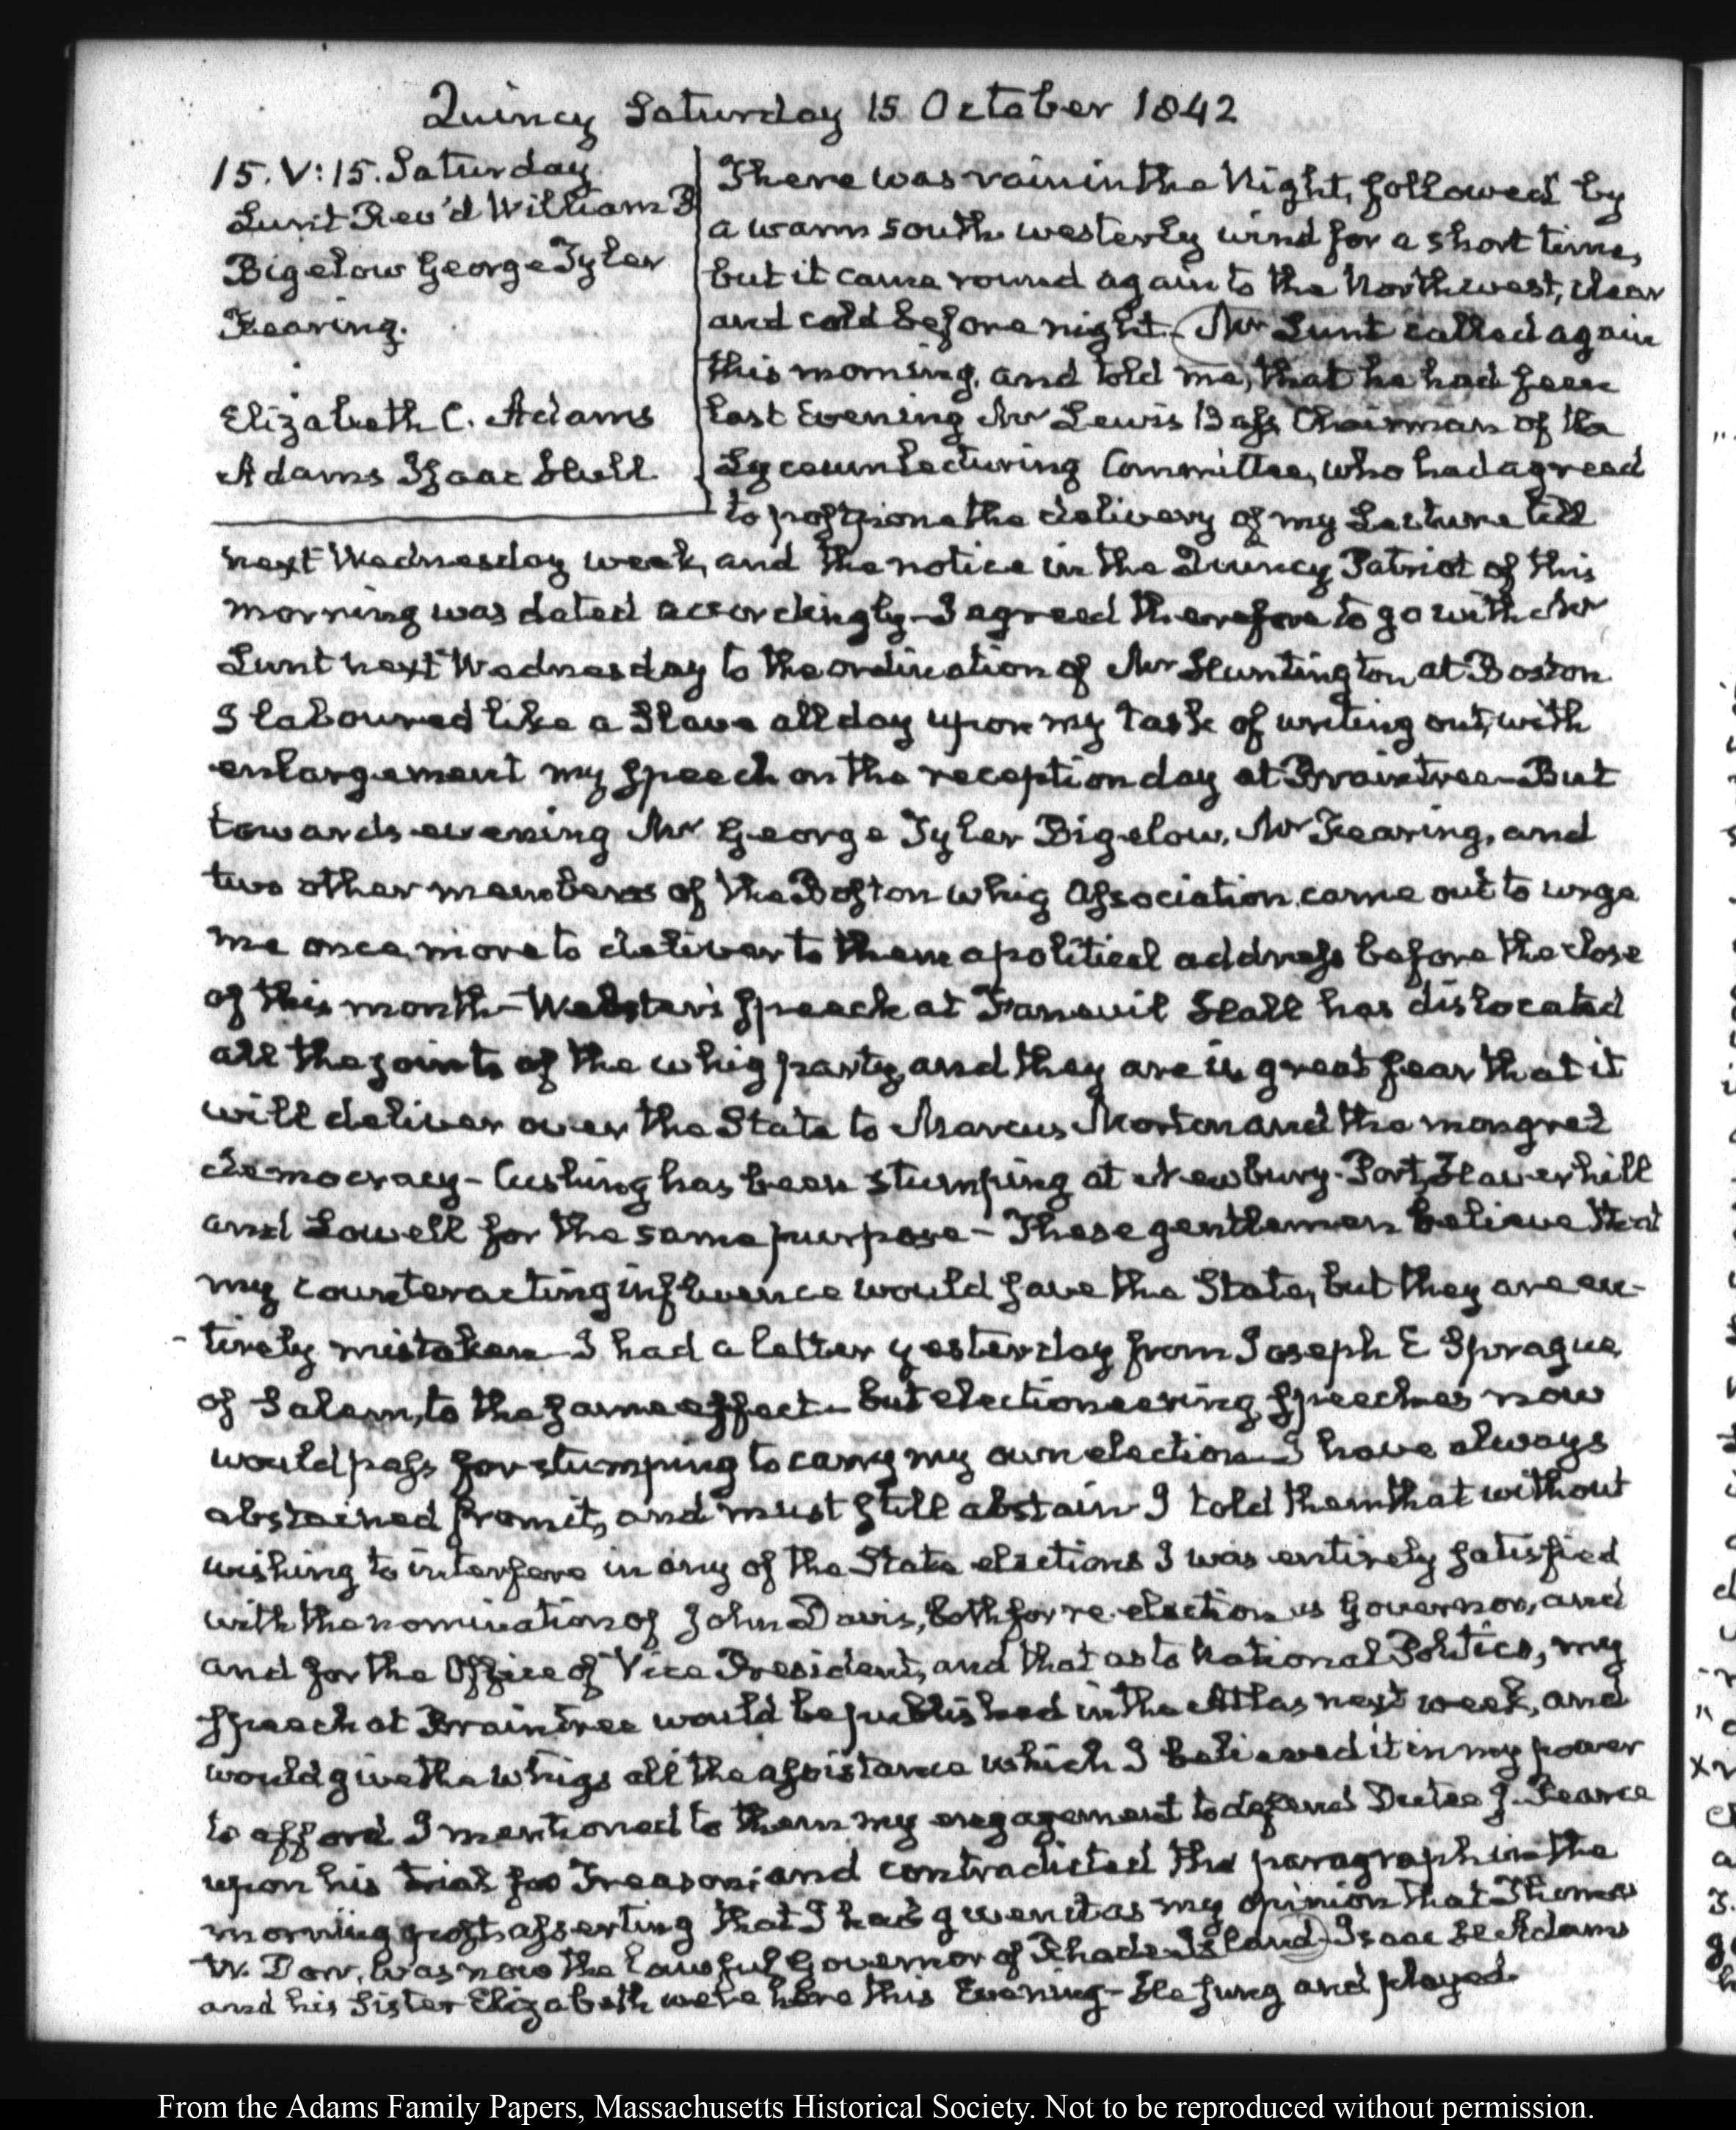 Quincy Saturday 15 October 1842
15. V:15. Saturday
Lunt Rev'd William P
Bigelow George Tyler
Fearing.
Elizabeth C. Adams
Adams Isaac Hull
There was rain in the Night, followed by
a warm south westerly wind for a short time,
but it came round again to the Northwest, clear
and cold before night. Mr Lunt called again
this morning, and told me, that he had seen
last Evening Mr Lewis Bass, Chairman of the
Lyceum lecturing Committee, who had agreed
to postpone the delivery of my Lecture till
next Wednesday week, and the notice in the Quincy Patriot of this
morning was dated accordingly - I agreed therefore to go with Mr
Lunt next Wednesday to the ordination of Mr Huntington at Boston
I laboured like a Slave all day upon my task of writing out, with
enlargement my speech on the reception day at Braintree - But
towards evening Mr George Tyler Bigelow, Mr Fearing, and
two other members of the Boston Whig Association came out to urge
me once more to deliver to them a political address before the close
of this month - Webster's speech at Faneuil Hall has dislocated
all the joints of the whig party, and they are in great fear that it
will deliver over the State to Marcus Morton and the mongrel
democracy - Cushing has been stumping at Newbury-Port, Haverhill
and Lowell for the same purpose - These gentlemen believe that
my counteracting influence would save the State, but they are en-
-tirely mistaken - I had a letter yesterday from Joseph E Sprague,
of Salem, to the same effect - But electioneering speeches now
would pass for stumping to carry my own election - I have always
abstained from it, and must still abstain - I told them that without
wishing to interfere in any of the State elections I was entirely satisfied
with the nomination of John Davis, both for re-election as Governor, and
and for the Office of Vice President, and that as to National Politics, my
speech at Braintree would be published in the Atlas next week, and
would give the Whigs all the assistance which I believed it in my power
to afford. I mentioned to them my engagement to defend Dutee J. Pearce
upon his trial for Treason; and contradicted the paragraph in the
morning post asserting that I had given it as my opinion that Thomas
W. Dorr, was now the lawful Governor of Rhode-Island - Isaac H. Adams
and his Sister Elizabeth were here this Evening - He sung and played.
From the Adams Family Papers, Massachusetts Historical Society. Not to be reproduced without permission.